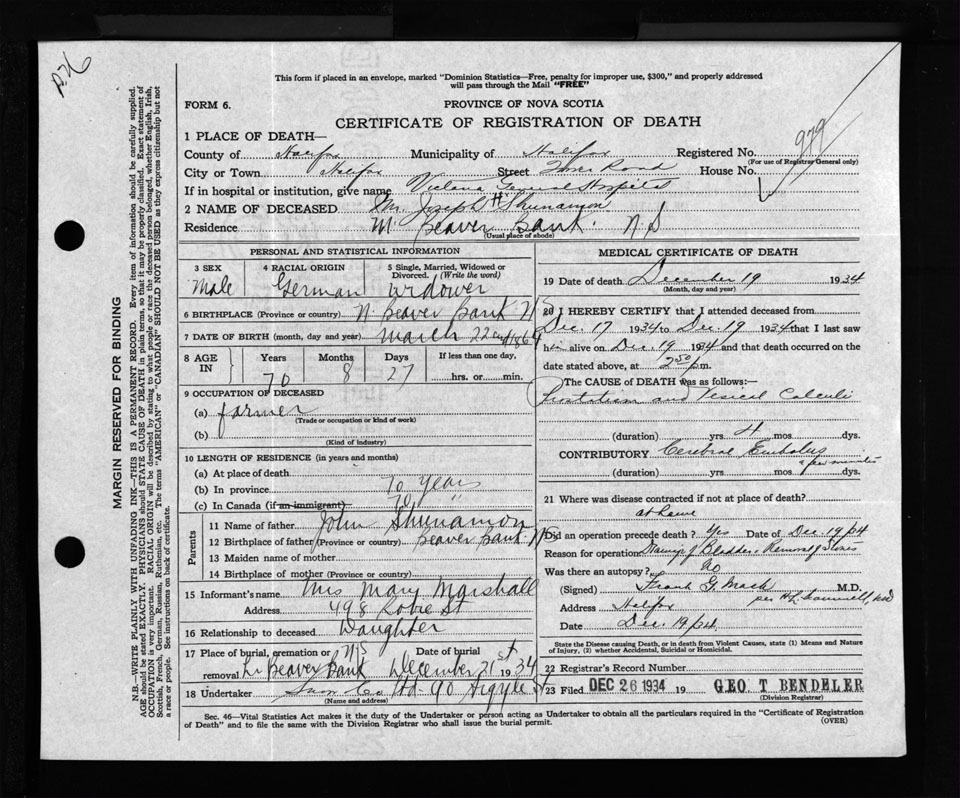 P.76
This form if placed in an envelope, marked "Dominion Statistics—Free, penalty for improper use, $300," and properly addressed
will pass through the Mail "FREE"
FORM 6.
PROVINCE OF NOVA SCOTIA
CERTIFICATE OF REGISTRATION OF DEATH
1 PLACE OF DEATH—
County of Halifax Municipality of Halifax Registered No. 979
(For use of Registrar General only)
City or Town Halifax Street Tower Road House No.
If in hospital or institution, give name Victoria General Hospital
2 NAME OF DECEASED Mr. Joseph H Shunamon
Residence M. Beaver Bank. N S
(Usual place of abode)
PERSONAL AND STATISTICAL INFORMATION
3 SEX 4 RACIAL ORIGIN 5 Single, Married, Widowed or Divorced. (Write the word)
Male German widower
6 BIRTHPLACE (Province or country) N. Beaver Bank NS
7 DATE OF BIRTH (month, day and year) March 22nd 1864
8 AGE IN Years Months Days If less than one day,
70 8 27 hrs. or min.
9 OCCUPATION OF DECEASED
(a) farmer
(Trade or occupation or kind of work)
(b)
(Kind of industry)
10 LENGTH OF RESIDENCE (in years and months)
(a) At place of death
(b) In province 70 Years
(c) In Canada (if an immigrant) 70 "
Parents
11 Name of father John Shunamon
12 Birthplace of father (Province or country) Beaver Bank NS
13 Maiden name of mother
14 Birthplace of mother (Province or country)
15 Informant's name Mrs Mary Marshall
Address 498 Robie St
16 Relationship to deceased Daughter
17 Place of burial, cremation or removal Date of burial
NS
Beaver Bank December 21st 1934
18 Undertaker Snow Co Ltd - 90 Argyle St
(Name and address)
MEDICAL CERTIFICATE OF DEATH
19 Date of death December 19 1934
(Month, day and year)
20 I HEREBY CERTIFY that I attended deceased from
Dec. 17 1934 to Dec. 19 1934 that I last saw
him alive on Dec. 19 1934 and that death occurred on the
date stated above, at 2 50 p m.
The CAUSE OF DEATH was as follows:—
Prostatism and Vesical Calculi
(duration) yrs. 4 mos. dys.
CONTRIBUTORY Cerebral Embolus
a few minutes
(duration) yrs. mos. dys.
21 Where was disease contracted if not at place of death?
at home
Did an operation precede death? Yes Date of Dec. 19/34
Reason for operation Drainage of Bladder & Removal of stones
Was there an autopsy? No
(Signed) Frank G. Mack M.D.
per
Address Halifax
Date Dec. 19/34.
State the Disease causing Death, or in death from Violent Causes, state (1) Means and Nature
of Injury, (2) whether Accidental, Suicidal or Homicidal.
22 Registrar's Record Number
23 Filed DEC 26 1934 19 GEO T BENDELER
(Division Registrar)
Sec. 46—Vital Statistics Act makes it the duty of the Undertaker or person acting as Undertaker to obtain all the particulars required in the "Certificate of Registration
of Death" and to file the same with the Division Registrar who shall issue the burial permit.
(OVER)
MARGIN RESERVED FOR BINDING
N.B.—WRITE PLAINLY WITH UNFADING INK—THIS IS A PERMANENT RECORD. Every item of information should be carefully supplied.
AGE should be stated EXACTLY. PHYSICIANS should STATE CAUSE OF DEATH in plain terms, so that it may be properly classified. Exact statement of
OCCUPATION is very important. RACIAL ORIGIN will be described by stating to what people or race the deceased person belonged, whether English, Irish,
Scottish, French, German, Russian, Ruthenian, etc. The terms "AMERICAN" or "CANADIAN" SHOULD NOT BE USED as they express citizenship but not
a race or people. See instructions on back of certificate.